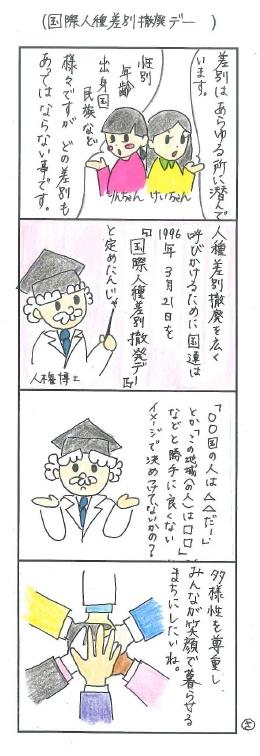 (国際人種差別撤廃デー )
差別はあらゆる所に潜んで
います。
性別
年齢
出身国
民族など
様々ですが どの差別も
あってはならない事です。
りんちゃん
けいちゃん
人種差別撤廃を広く
呼びかけるために国連は
1996年 3月21日を
『国際人種差別撤発デー』
と定めたんじゃ
人権博士
「〇〇国の人は△△だー」
とか「この地域(の人)は□□」
などと勝手に良くない
イメージで決めつけてないかの?
多様性を尊重し
みんなが笑顔で暮らせる
まちにしたいね。